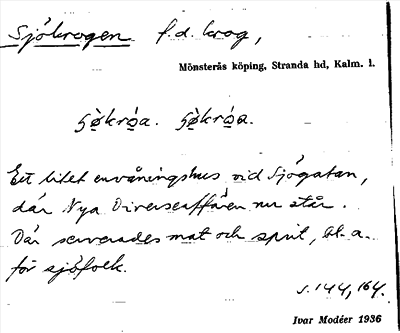 Sjökrogen f.d. krog,
Mönsterås köping, Stranda hd, Kalm. l.
Ett litet envåningshus vid Sjögatan,
där Nya Diverseaffären nu står.
Där serverades mat och sprit, bl. a.
för sjöfolk.
s. 144, 164.
Ivar Modéer 1936